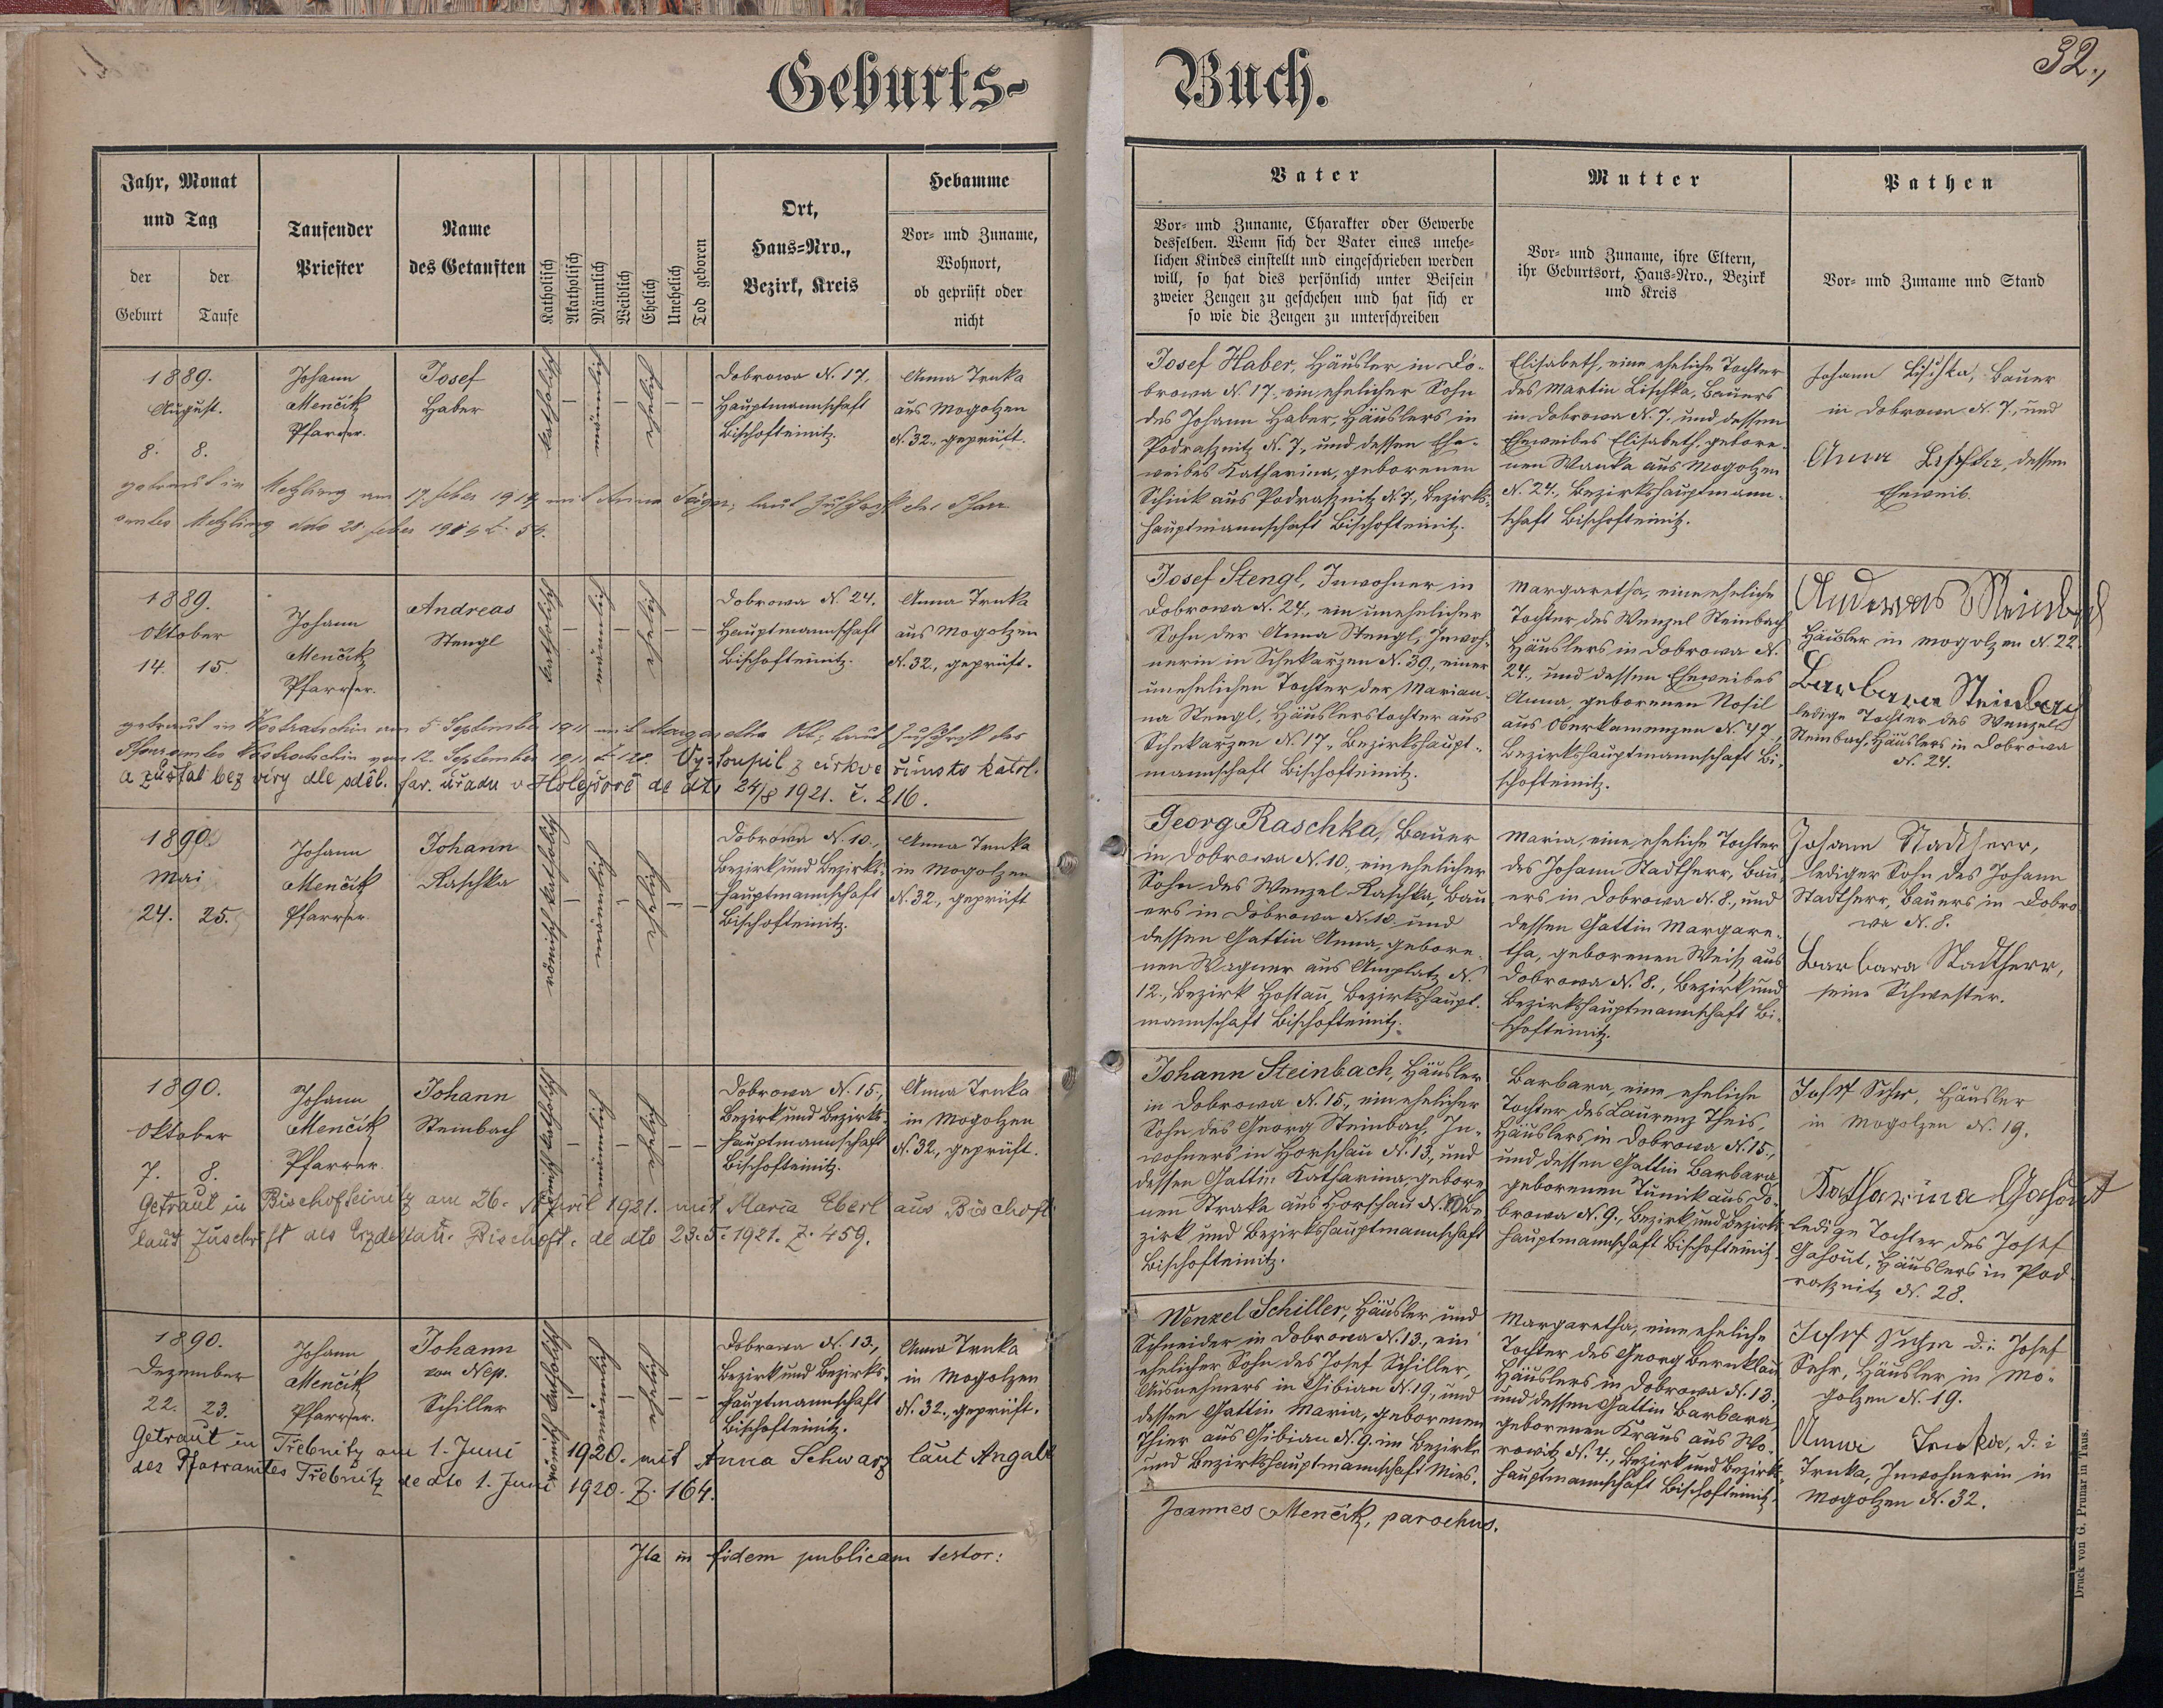 Geburts-
Buch.
32.,
Jahr, Monat
und Tag
der
Geburt
der
Taufe
Taufender
Priester
Name
des Getauften
Katholisch
Akatholisch
Männlich
Weiblich
Ehelich
Unehelich
Tod geboren
Ort,
Haus-Nro.,
Bezirk, Kreis
Hebamme
Vor- und Zuname,
Wohnort,
ob geprüft oder
nicht
Vater
Vor- und Zuname, Charakter oder Gewerbe
desselben. Wenn sich der Vater eines unehe-
lichen Kindes einstellt und eingeschrieben werden
will, so hat dies persönlich unter Beisein
zweier Zeugen zu geschehen und hat sich er
so wie die Zeugen zu unterschreiben
Mutter
Vor- und Zuname, ihre Eltern,
ihr Geburtsort, Haus-Nro., Bezirk
und Kreis
Pathen
Vor- und Zuname und Stand
1889.
August.
8. 8.
Johann
Menčik
Pfarrer.
Josef
Haber
katholisch
männlich
ehelich
Dobrowa N. 17,
Hauptmannschaft
Bischofteinitz.
Anna Trnka
aus Mogolzen
N. 32., geprüft.
Josef Haber, Häusler in Do-
browa N. 17, ein ehelicher Sohn
des Johann Haber, Häuslers in
Podrasznitz N. 7, und dessen Ehe-
weibes Katharina, geborenen
Schink aus Podrasznitz N. 7, Bezirks-
hauptmannschaft Bischofteinitz.
Elisabeth, eine eheliche Tochter
des Martin Lischka, Bauers
in Dobrowa N. 7. und dessen
Eheweibes Elisabeth, gebore-
nen Wanka aus Mogolzen
N. 24., Bezirkshauptmann-
schaft Bischofteinitz.
Johann Lischka, Bauer
in Dobrowa N. 7., und
Anna Lischka, dessen
Eheweib.
getraut in Metzling am 17. feber 1914 mit Anna laut Zuschrift des Pfarr
amtes Metzling dto 28. feber 1914 Z. 54.
1889.
Oktober
14. 15.
Johann
Menčik
Pfarrer.
Andreas
Stengl
katholisch
männlich
ehelich
Dobrowa N. 24.
Hauptmannschaft
Bischofteinitz.
Anna Trnka
aus Mogolzen
N. 32., geprüft.
Josef Stengl, Inwohner in
Dobrowa N. 24., ein unehelicher
Sohn der Anna Stengl, Inwoh-
nerin in Schekarzen N. 39., einer
unehelichen Tochter der Marian-
na Stengl, Häuslerstochter aus
Schekarzen N. 17., Bezirkshaupt-
mannschaft Bischofteinitz.
Margaretha, eine eheliche
Tochter des Wenzel Steinbach
Häuslers in Dobrowa N.
24., und dessen Eheweibes
Anna, geborenen Nosil
aus Oberkamenzen N. 47.,
Bezirkshauptmannschaft Bi-
schofteinitz.
Andreas Steinbach
Häusler in Mogolzen N. 22.
Barbara Steinbach
ledige Tochter des Wenzel
Steinbach, Häuslers in Dobrowa
N. 24.
getraut in am 5. September 1911 mit Margaretha laut Zuschrift des
Pfarramtes vom 12. September 1911 Z. 128. Vystoupil z církve římsko katol.
a zůstal bez víry dle sděl. far. úřadu v Holejšově de dto 24/8 1921. č. 216.
1890.
Mai
24. 25.
Johann
Menčik
Pfarrer.
Johann
Raschka
römisch katholisch
männlich
ehelich
Dobrowa N. 10.,
Bezirk und Bezirks-
hauptmannschaft
Bischofteinitz.
Anna Trnka
in Mogolzen
N. 32., geprüft
Georg Raschka, Bauer
in Dobrowa N. 10., ein ehelicher
Sohn des Wenzel Raschka, Bau
ers in Dobrowa N. 10. und
dessen Gattin Anna, gebore-
nen Wagner aus Amplatz N.
12., Bezirk Hostau, Bezirkshaupt-
mannschaft Bischofteinitz.
Maria, eine eheliche Tochter
des Johann Stadtherr, Bau-
ers in Dobrowa N. 8., und
dessen Gattin Margare-
tha, geborenen Weiß aus
Dobrowa N. 8., Bezirk und
Bezirkshauptmannschaft Bi-
schofteinitz.
Johann Stadtherr,
lediger Sohn des Johann
Stadtherr, Bauers in Dobro
wa N. 8.
Barbara Stadtherr,
seine Schwester.
1890.
Oktober
7. 8.
Johann
Menčik
Pfarrer.
Johann
Steinbach
römisch katholisch
männlich
ehelich
Dobrowa N. 15.,
Bezirk und Bezirks-
hauptmannschaft
Bischofteinitz.
Anna Trnka
in Mogolzen
N. 32., geprüft.
Johann Steinbach, Häusler
in Dobrowa N. 15., ein ehelicher
Sohn des Georg Steinbach, In-
wohners in Horschau N. 13., und
dessen Gattin Katharina, gebore
nen Straka aus Horschau N. Be
zirk und Bezirkshauptmannschaft
Bischofteinitz.
Barbara, eine eheliche
Tochter des Laurenz Theis,
Häuslers in Dobrowa N. 15.,
und dessen Gattin Barbara,
geborenen Tunik aus Do-
browa N. 9., Bezirk und Bezirks
hauptmannschaft Bischofteinitz.
Josef Sehr, Häusler
in Mogolzen N. 19.
Katharina Gahout
ledige Tochter des Josef
Gahout, Häuslers in Pod
rasznitz N. 28.
Getraut in Bischofteinitz am 26. April 1921. mit Maria Eberl aus Bischoft.
laut Zuschrift des Erzdekan. Bischoft. de dto 23.5.1921. Z. 459.
1890.
Dezember
22. 23.
Johann
Menčik
Pfarrer.
Johann
von Nep.
Schiller
römisch katholisch
männlich
ehelich
Dobrowa N. 13.,
Bezirk und Bezirks-
hauptmannschaft
Bischofteinitz.
Anna Trnka
in Mogolzen
N. 32., geprüft.
Wenzel Schiller, Häusler und
Schneider in Dobrowa N. 13., ein
ehelicher Sohn des Josef Schiller,
Ausnehmers in Gibian N. 19., und
dessen Gattin Maria, geborenen
Thier aus Gibian N. 9. im Bezirke
und Bezirkshauptmannschaft Mies.
Margaretha, eine eheliche
Tochter des Georg Bernklau
Häuslers in Dobrowa N. 13.,
und dessen Gattin Barbara,
geborenen Kraus aus Wo-
rowitz N. 4., Bezirk und Bezirks-
hauptmannschaft Bischofteinitz.
Josef Sehr d. i. Josef
Sehr, Häusler in Mo-
golzen N. 19.
Anna Trnka, d. i.
Trnka, Inwohnerin in
Mogolzen N. 32.
Getraut in Třebnitz am 1. Juni 1920. mit Anna Schwarz laut Angabe
des Pfarramtes Třebnitz de dto 1. Juni 1920. Z. 164.
Ita in fidem publicam testor:
Joannes Menčik, parochus.
Druck von G. Prunar in Taus.